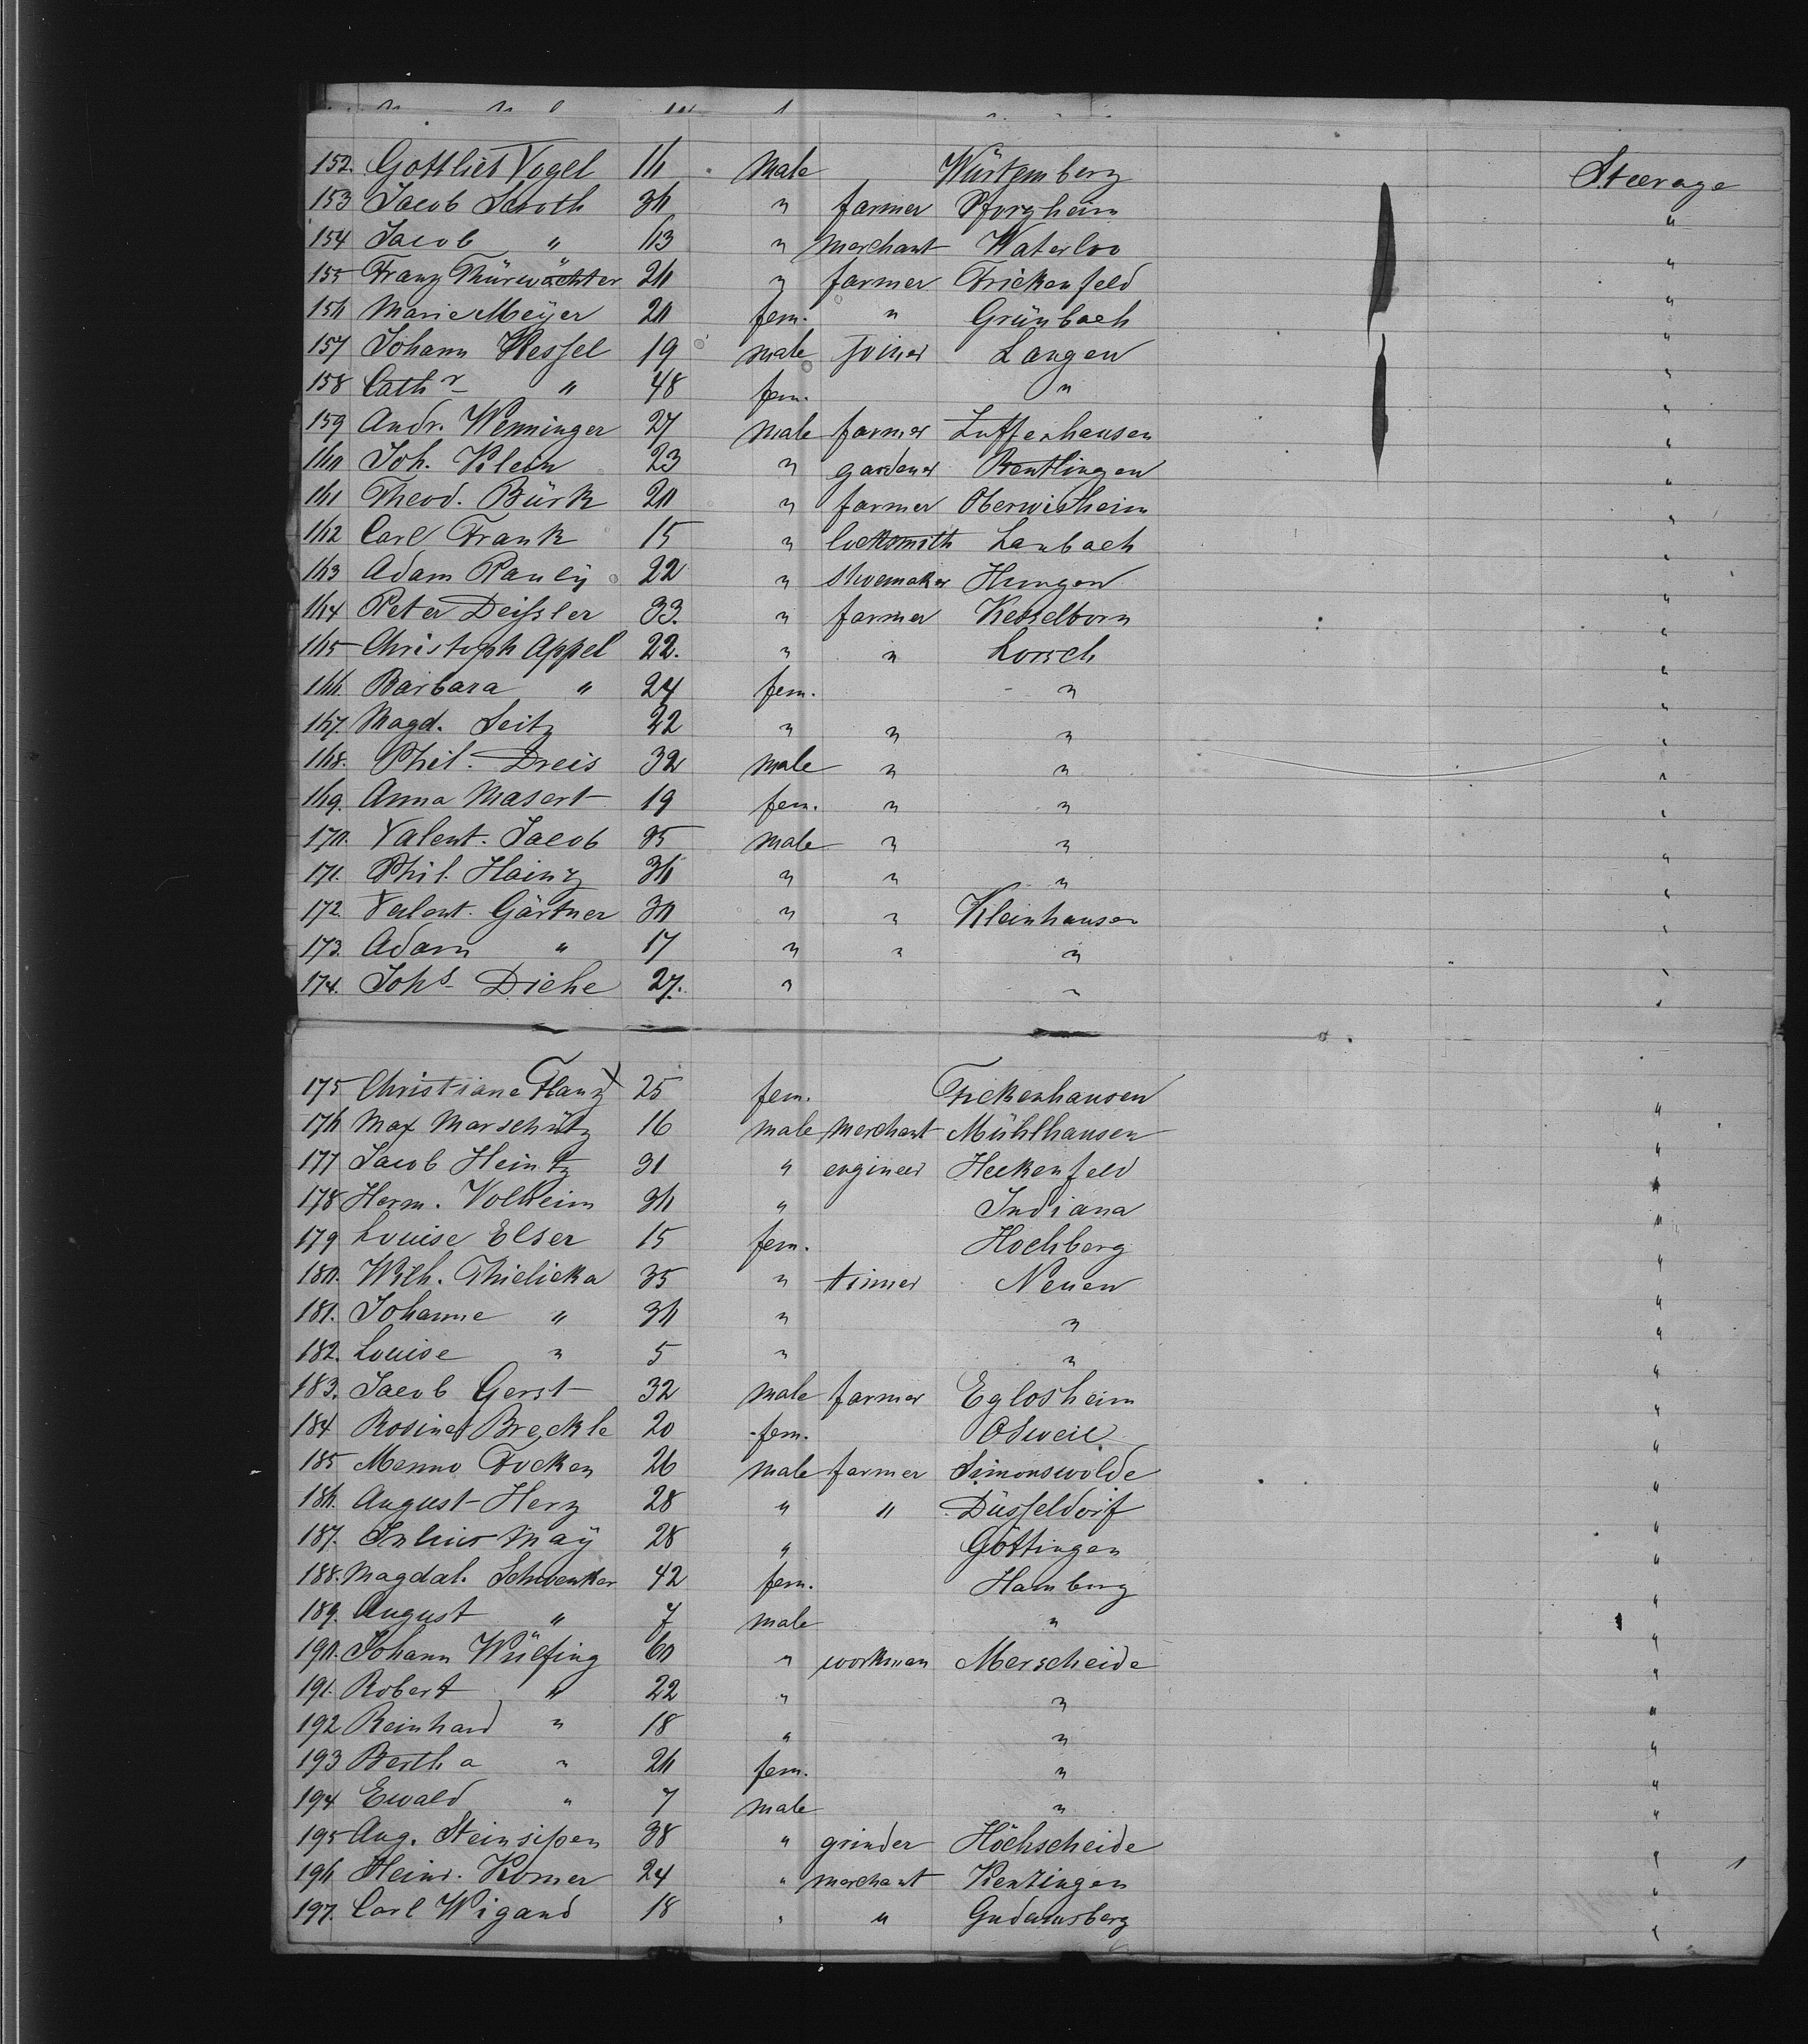 152. Gottlieb Vogel 16 male Würtemberg Steerage
153 Jacob Saroth 36 " farmer Pforzheim "
154 Jacob " 63 " merchant Waterloo "
155 Franz Thürwächter 26 " farmer Frickenfeld "
156 Marie Meÿer 20 fem. " Grünbach "
157 Johann Wessel 19 male Joiner Langen "
158 Cathr " 48 fem. " "
159 Andr. Wenninger 27 male farmer Zuffenhausen "
160 Joh. Klein 23 " gardener Reutlingen "
161 Theod. Bürk 20 " farmer Oberwisheim "
162 Carl Frank 15 " locksmith Laubach "
163 Adam Pauly 22 " shoemaker Hungen "
164 Peter Deissler 33. " farmer Kesselborn "
165 Christoph Appel 22. " " Lorsch "
166. Barbara " 24 fem. " "
167. Magd. Seitz 22 " " " "
168. Phil. Dreis 32 male " " "
169. Anna Masert 19 fem. " " "
170. Valent. Jacob 35 male " " "
171. Phil. Hainz 36 " " " "
172. Valent. Gärtner 30 " " Kleinhausen "
173. Adam " 17 " " " "
174. Johs Diehe 27. " " "
175 Christiane Flanz 25 fem. Frickenhausen "
176 Max Marschütz 16 male merchant Mühlhausen "
177 Jacob Heintz 31 " engineer Heckenfeld "
178 Herm. Volkeim 36 " Indiana "
179 Louise Elser 15 fem. Hochberg "
180. Wilh. Thielicka 35 " tinner Neuen "
181. Johanne " 36 " " "
182. Louise " 5 " " "
183. Jacob Gerst 32 male farmer Eglosheim "
184 Rosine Breckle 20 fem. Osweil "
185 Menno Focken 26 male farmer Simonswolde "
186. August Herz 28 " " Düsseldorf "
187. Julius Maÿ 28 " Göttingen "
188. Magdal. Schwenker 42 fem. Hamburg "
189. August " 7 male " "
190. Johann Wülfing 60 " workman Merscheide "
191. Robert " 22 " " "
192 Reinhard " 18 " " "
193 Bertha " 26 fem. " "
194 Ewald " 7 male " "
195 Aug. Steinsipen 38 " grinder Höhscheide "
196 Heinr. Korner 24 " merchant Kenzingen "
197. Carl Wigand 18 " " Gudensberg "